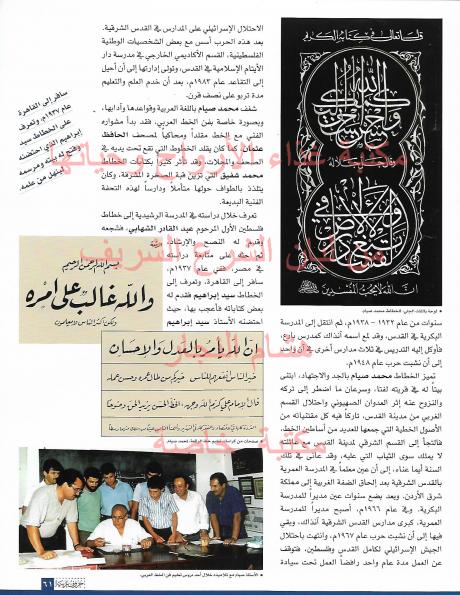 قال تعالى في كتابه الكريم
ان الله لا يحب المفسدين
● لوحة بالثلث الجلي، الخطاط محمد صيام.
سنوات من عام ١٩٣٢ - ١٩٣٨م، ثم انتقل إلى المدرسة
البكرية في القدس، وقد لمع اسمه آنذاك كمدرس بارع،
فأوكل إليه التدريس في ثلاث مدارس أخرى في آن واحد
إلى أن نشبت حرب عام ١٩٤٨م.
تميز الخطاط محمد صيام بالجد والاجتهاد، ابتنى
بيتاً له في قريته لفتا، وسرعان ما اضطر إلى تركه
والنزوح عنه إثر العدوان الصهيوني واحتلال القسم
الغربي من مدينة القدس، تاركاً فيه كل مقتنياته من
الأصول الخطية التي جمعها للعديد من أساطين الخط،
فالتجأ إلى القسم الشرقي لمدينة القدس مع عائلته
لا يملك سوى الثياب التي عليه، وقد عانى في تلك
السنة أيما عناء، إلى أن عين معلماً في المدرسة العمرية
بالقدس الشرقية بعد إلحاق الضفة الغربية إلى مملكة
شرق الأردن. وبعد بضع سنوات عين مديراً للمدرسة
البكرية. وفي عام ١٩٦٦م أصبح مديراً للمدرسة
العمرية، كبرى مدارس القدس الشرقية آنذاك، وبقي
فيها إلى أن نشبت حرب عام ١٩٦٧م، وانتهت باحتلال
الجيش الإسرائيلي لكامل القدس وفلسطين، فتوقف
عن العمل مدة عام واحد رافضاً العمل تحت سيادة
الاحتلال الإسرائيلي على المدارس في القدس الشرقية.
بعد هذه الحرب أسس مع بعض الشخصيات الوطنية
الفلسطينية، القسم الأكاديمي الخارجي في مدرسة دار
الأيتام الإسلامية في القدس، وتولى إدارتها إلى أن أحيل
إلى التقاعد عام ١٩٨٣م، بعد أن خدم العلم والتعليم
مدة تربو على نصف قرن.
شغف محمد صيام باللغة العربية وقواعدها وآدابها،
وبصورة خاصة بفن الخط العربي، فقد بدأ مشواره
الفني مع الخط مقلداً ومحاكياً لمصحف الحافظ
عثمان، كما كان يقلد الخطوط التي تقع تحت يديه في
الصحف والمجلات، وقد تأثر كثيراً بكتابات الخطاط
محمد شفيق التي تزين قبة الصخرة المشرفة، وكان
يتلذذ بالطواف حولها متأملاً ودارساً لهذه التحفة
الفنية البديعة.
تعرف خلال دراسته في المدرسة الرشيدية إلى خطاط
فلسطين الأول المرحوم عبد القادر الشهابي، فشجعه
وقدم له النصح والإرشاد،
ثم حثه على متابعة دراسته
في مصر. ففي عام ١٩٣٧م،
سافر إلى القاهرة، وتعرف إلى
الخطاط سيد إبراهيم فقدم له
بعض كتاباته فأعجب بها، حيث
احتضنه الأستاذ سيد إبراهيم
سافر إلى القاهرة
عام ١٩٣٧م وتعرف
على الخطاط سيد
إبراهيم الذي احتضنه
وفتح له بيته ومرسمه
لينهل من علمه
بسم الله الرحمن الرحيم
والله غالب على أمره
ولكن أكثر الناس لا يعلمون
إن الله يأمر بالعدل والإحسان
خير الناس أنفعهم للناس خيركم من طال عمره وحسن عمله
قال الإمام علي كرم الله وجهه، الخط الحسن يزيد الحق وضوحا
● صفحات من كراسات تعليم خط الرقعة، لمحمد صيام.
● الأستاذ صيام مع تلاميذه خلال أحد دروس تعليم فن الخط العربي.
حروف عربية
٦١